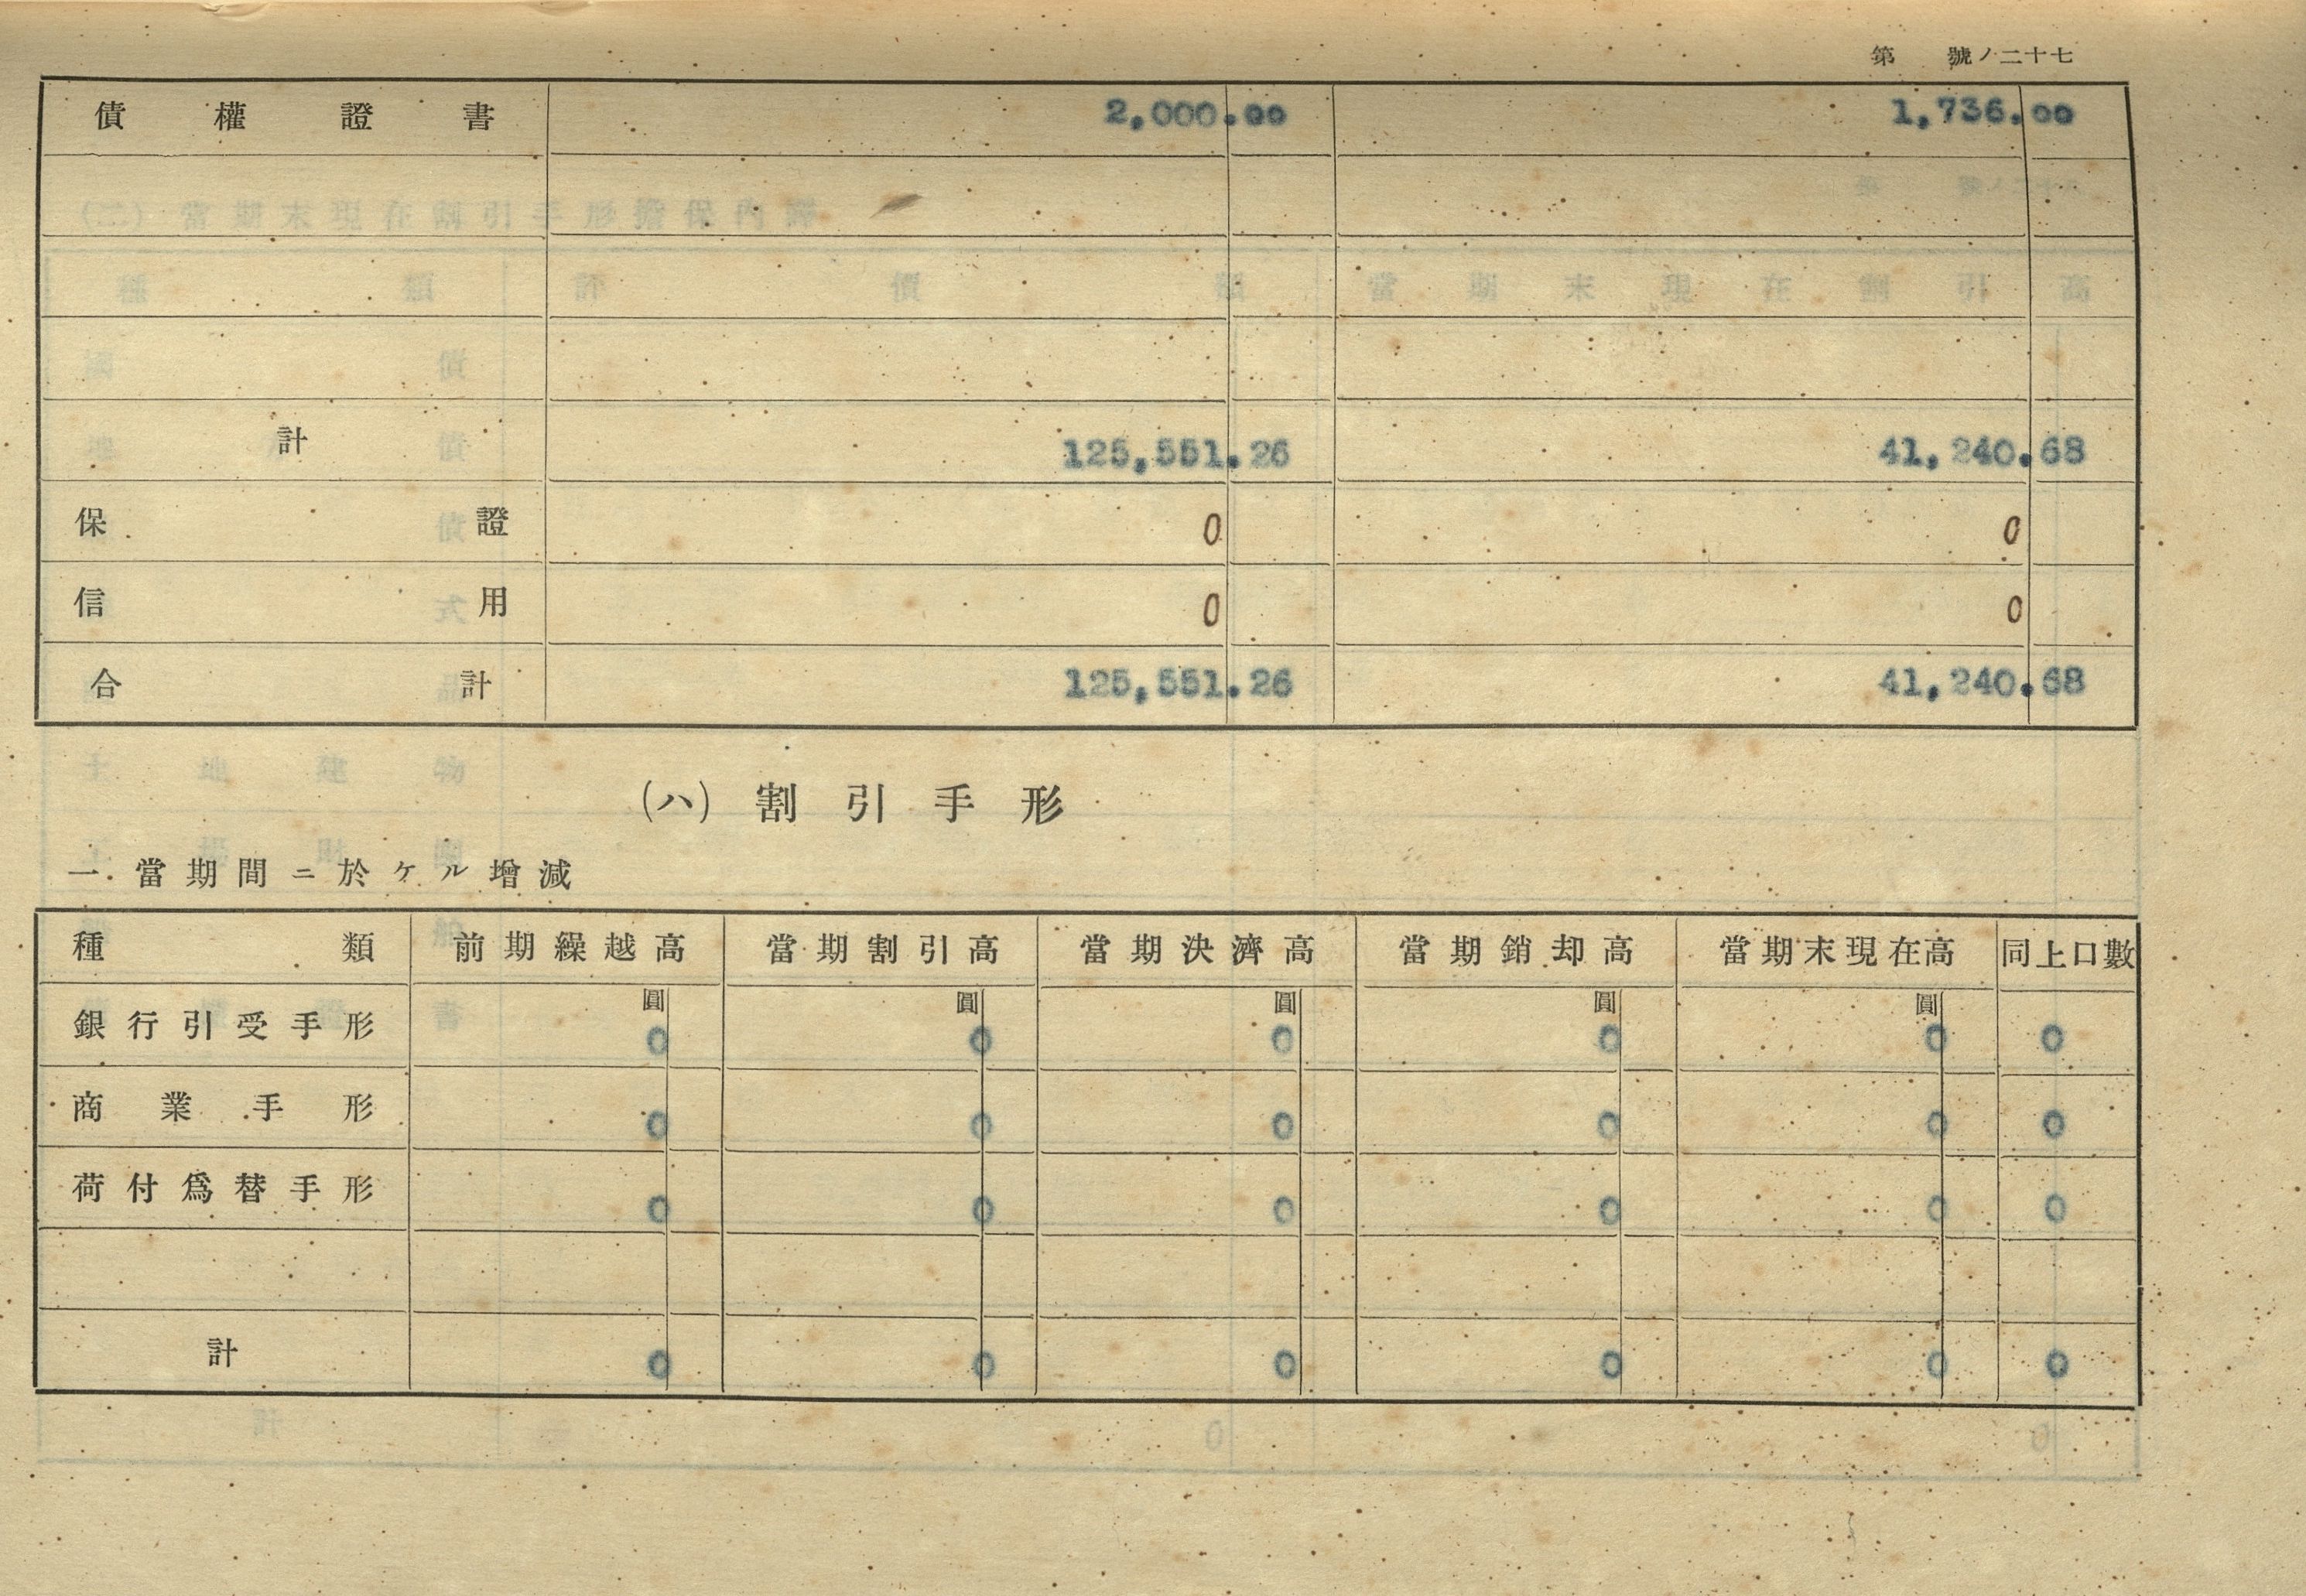 第　號ノ二十七
債權證書 2,000.00 1,736.00
計 125,551.26 41,240.68
保證 0 0
信用 0 0
合計 125,551.26 41,240.68
(ハ) 割引手形
一. 當期間ニ於ケル增減
種類 前期繰越高 當期割引高 當期決濟高 當期銷却高 當期末現在高 同上口數
圓 圓 圓 圓 圓
銀行引受手形 0 0 0 0 0 0
商業手形 0 0 0 0 0 0
荷付爲替手形 0 0 0 0 0 0
計 0 0 0 0 0 0